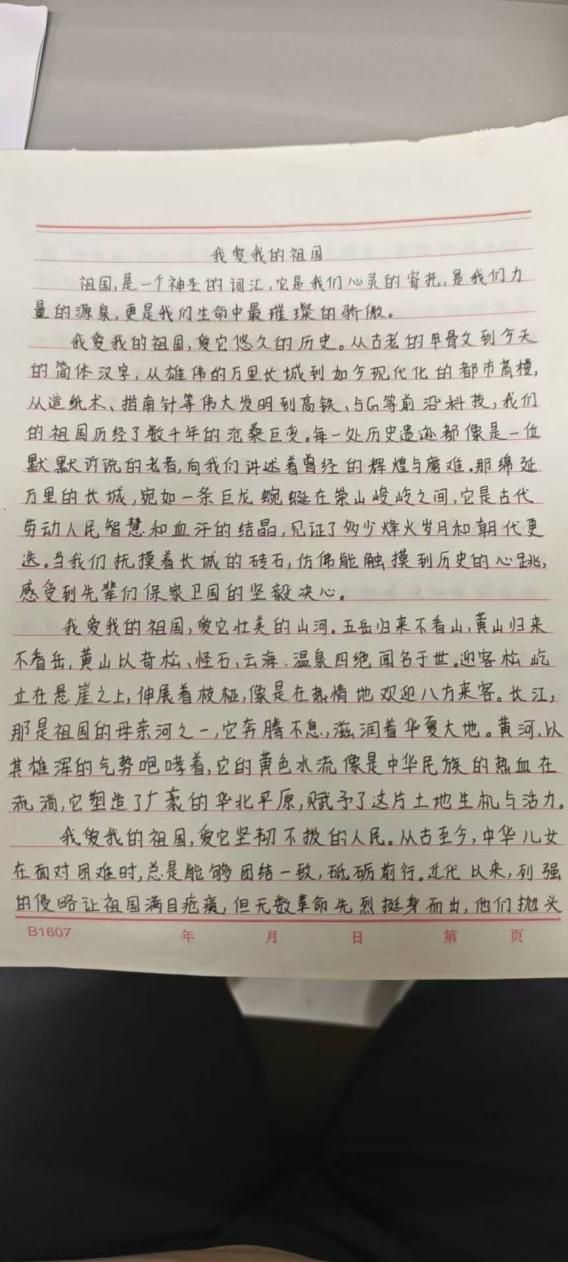 我爱我的祖国
祖国,是一个神圣的词汇,它是我们心灵的寄托,是我们力
量的源泉,更是我们生命中最璀璨的骄傲。
我爱我的祖国,爱它悠久的历史。从古老的甲骨文到今天
的简体汉字,从雄伟的万里长城到如今现代化的都市高楼,
从造纸术、指南针等伟大发明到高铁、5G等前沿科技,我们
的祖国历经了数千年的沧桑巨变。每一处历史遗迹都像是一位
默默诉说的老者,向我们讲述着曾经的辉煌与磨难。那绵延
万里的长城,宛如一条巨龙蜿蜒在崇山峻岭之间,它是古代
劳动人民智慧和血汗的结晶,见证了多少烽火岁月和朝代更
迭。当我们抚摸着长城的砖石,仿佛能触摸到历史的心跳,
感受到先辈们保家卫国的坚毅决心。
我爱我的祖国,爱它壮美的山河。五岳归来不看山,黄山归来
不看岳,黄山以奇松、怪石、云海、温泉四绝闻名于世。迎客松屹
立在悬崖之上,伸展着枝桠,像是在热情地欢迎八方来客。长江,
那是祖国的母亲河之一,它奔腾不息,滋润着华夏大地。黄河,以
其雄浑的气势咆哮着,它的黄色水流像是中华民族的热血在
流淌,它塑造了广袤的华北平原,赋予了这片土地生机与活力。
我爱我的祖国,爱它坚韧不拔的人民。从古至今,中华儿女
在面对困难时,总是能够团结一致,砥砺前行。近代以来,列强
的侵略让祖国满目疮痍,但无数革命先烈挺身而出,他们抛头
B1607 年 月 日 第 页